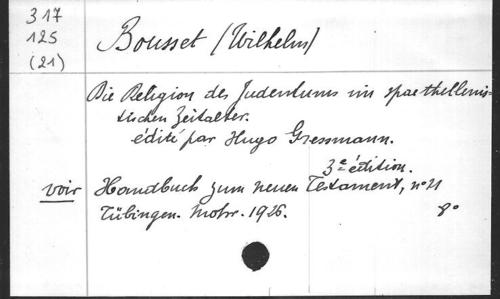 317
125
(21)
Bousset (Wilhelm)
Die Religion des Judentums im spaethellenis-
tischen Zeitalter.
édité par Hugo Gressmann.
3e édition.
voir Handbuch zum neuen Testament, n° 21
Tübingen. Mohr. 1926. 8°